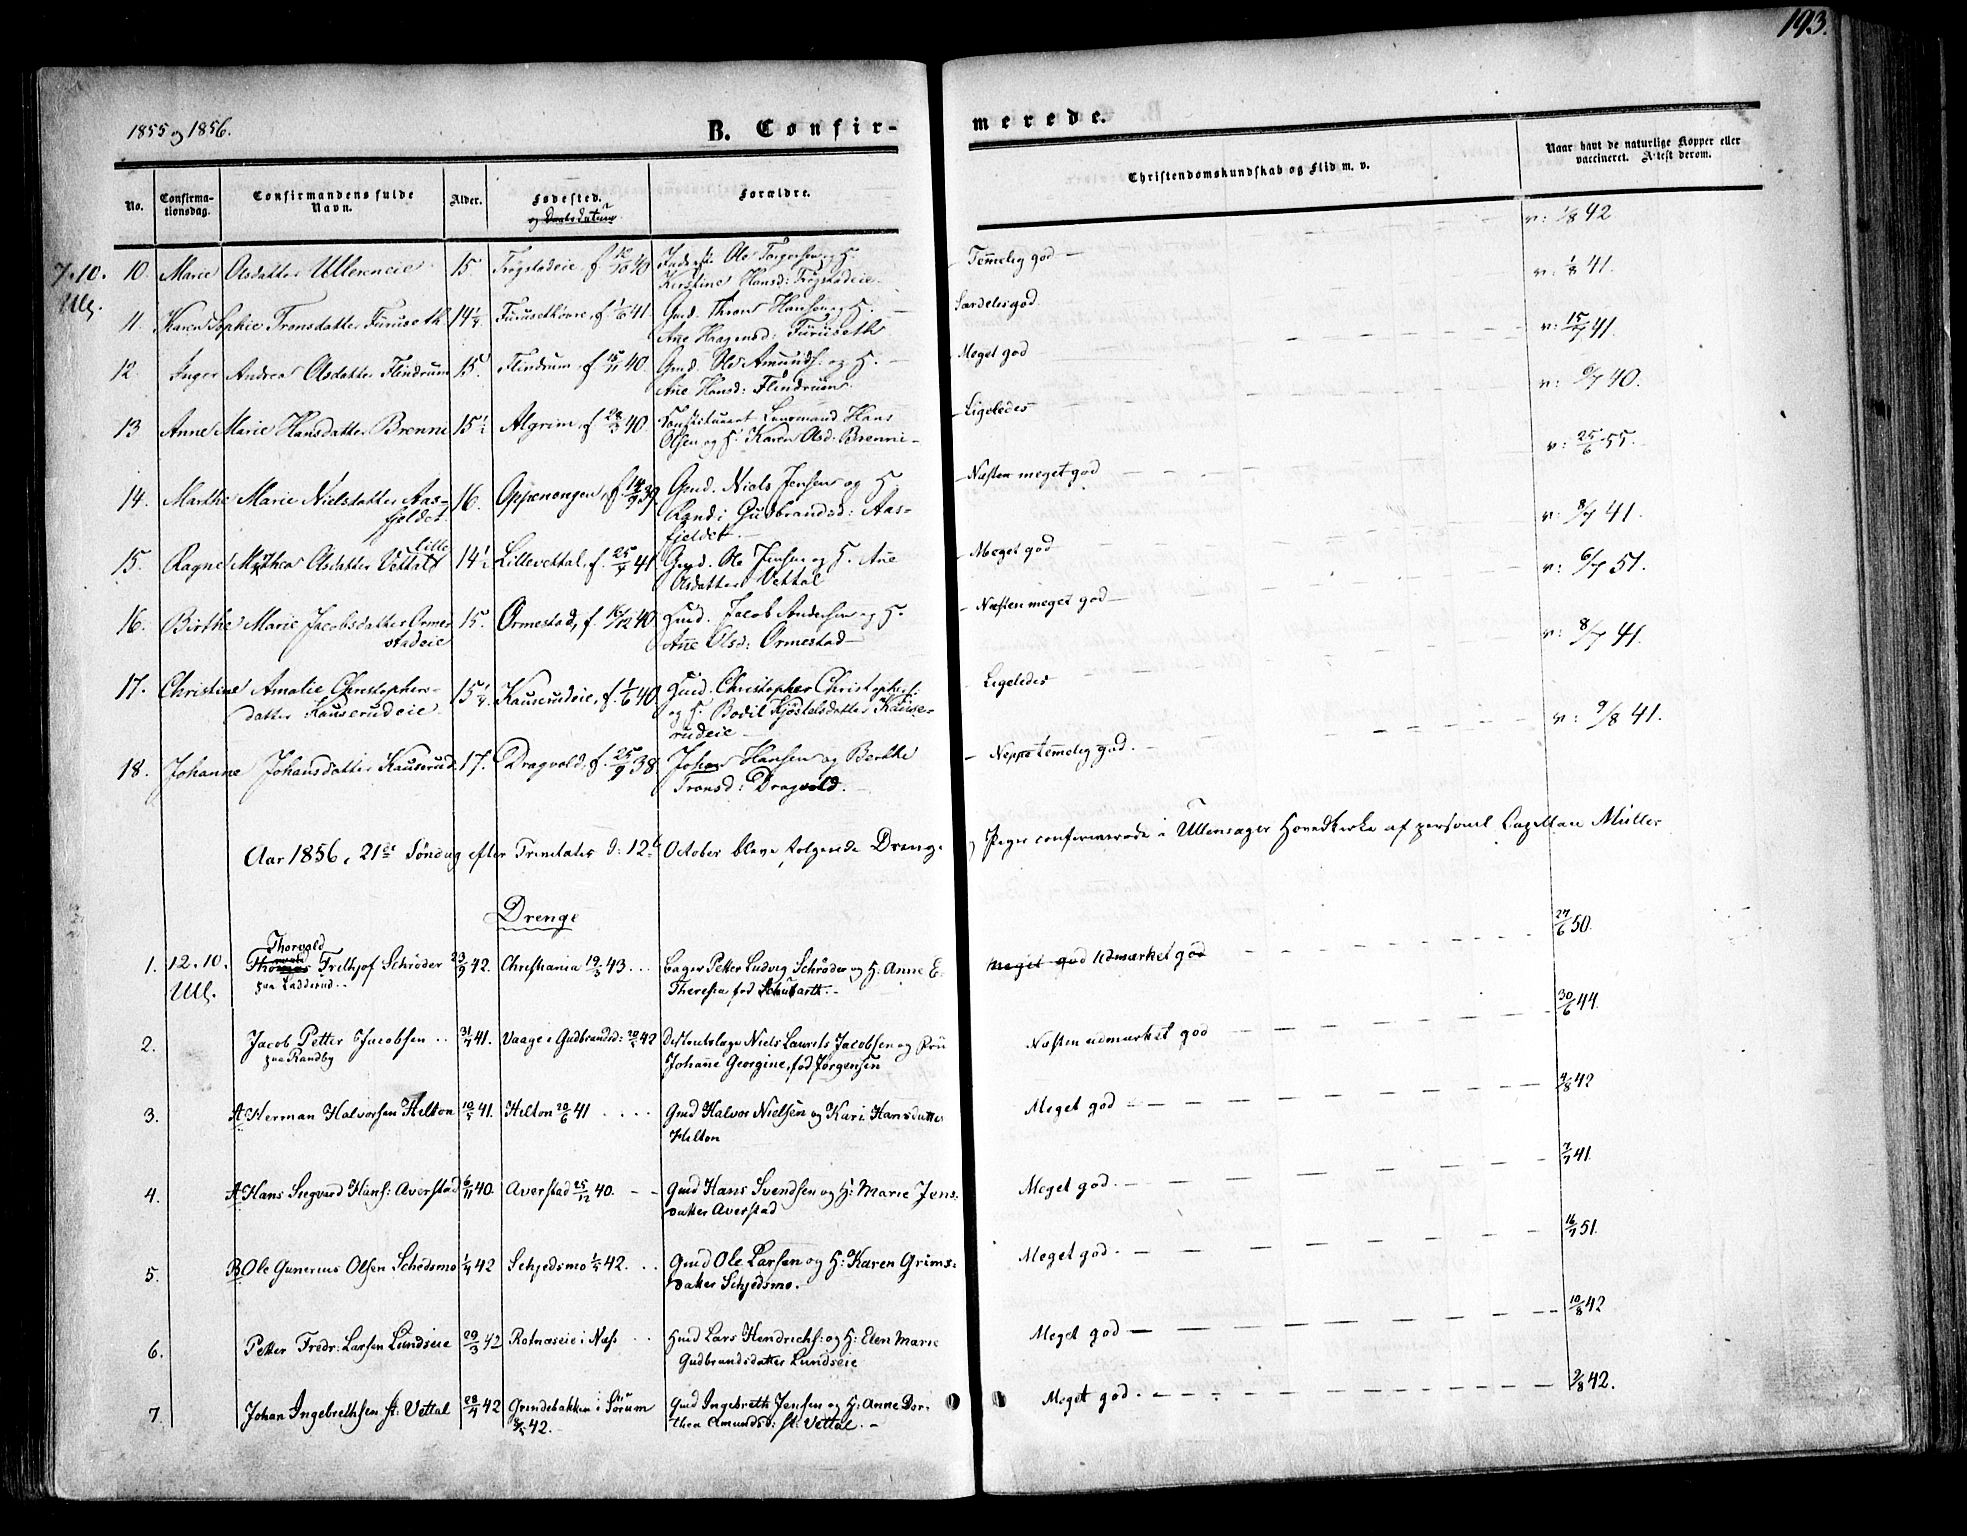 193.
1855 og 1856.
B. Confir-
merede.
No.
Confirma-
tionsdag.
Confirmandens fulde
Navn.
Alder.
Fødested.
og Daabsdatum
Forældre.
Christendomskundskab og Flid m. v.
Naar havt de naturlige Kopper eller
vaccineret. Attest derom.
7.10. 10 Maree Olsdatter Ullereneie 15 Trøgstadeie, f. 40 Ole Torgersen og H. Temmelig god — v: 1/8 42
Ull. Kirstine Hansd: Trøgstadeie
11 Karen Sophie Tronsdatter Furuseth 14 1/2 f. 41 Gmd. Thron Hansen og H. Særdeles god v: 1/8 41.
Ane Haagensd: Furuseth
12 Inger Andrea Olsdatter Flindrum 15 Flindrum, f. 15/11 40. Gmd. Ole Amunds. og H. Meget god v: 15/7 41.
Ane Hansd: Flindrum
13 Anne Marie Hansdatter Brenni 15 1/2 Algrim, f. 28/3 40. Constitueret Lensmand Hans Ligeledes v: 6/7 40.
Olsen og H. Karen Olsd. Brenni
14. Marthe Marie Nielsdatter Aas- 16. f. 14/9 39 Gmd. Niels Jensen og H. Næsten meget god v: 25/6 55.
fjeldet. Gudbrandsd: Aas-
fjeldet.
15. Ragne Mathea Olsdatter Lille Vettal 14 1/2 Lillevettal, f. 41 Gmd. Ole Jensen og H. Ane Meget god v: 8/7 41.
Olsdatter Vettal
16. Birthe Marie Jacobsdatter Ormer 15. Ormestad, f. 16/12 40 Gmd. Jacob Andersen og H. Næsten meget god — v: 6/7 51.
stadeie Ane Olsd: Ormestad
17. Christine Amalie Christophers- 15 1/4. Kauserudeie, f. 1/6 40 Gmd. Christopher Christophers: Ligeledes v: 8/7 41.
datter Kauserudeie og H. Bodil Kjøstelsdatter Kause-
rudeie
18. Johanne Johansdatter Kauserud 17. Dragvold, f. 25/9 38. Johan Hansen og Berthe Neppe temmelig god. v: 9/8 41.
Tronsd: Dragvold.
Aar 1856, 21de Søndag efter Trinitatis d: 12te October bleve følgende Drenge og Piger confirmerede i Ullensager Hovedkirke af personel Capellan Müller
Drenge
1. 12.10. Thorvald Thomas Frithjof Schrøder 23/9 42. Christiania 19/3 43... Bager Petter Ludvig Schrøder og H. Anne E. Meget god Udmærket god 27/6 50.
Ull. paa Ladderud.. Theresia, fød Schubarth.
2. Jacob Petter Jacobsen.. 31/7 41. Vaage i Gudbrandsd: 20/2 42 Niels Laurits Jacobsen og Fru Næsten udmærket god 30/6 44.
paa Randby Johanne Georgine, fød Jørgensen
3. A Herman Halvorsen Hilton 10/5 41. Hilton 20/6 41 .... Gmd Halvor Nielsen og Kari Hansdatter Meget god 4/8 42
Hilton
4. A Hans Siegvard Hans: Averstad 6/11 40. Averstad 25/12 40. Gmd Hans Svendsen og H: Marie Jens- Meget god. 7/7 41.
datter Averstad
5. B Ole Gunerius Olsen Schedsmo 1/4 42 Schjedsmo 42. Gmd Ole Larsen og H: Karen Grims- Meget god. 16/7 51.
datter Schjedsmo.
6. Petter Fredr: Larsen Lundseie 29/3 42 Rotnæseie i Næs .. Hmd Lars Hendrichs: og H: Elen Marie Meget god — 10/8 42
Gudbrandsdatter Lundseie
7. Johan Ingebrethsen st: Vettal 28/4 42 Grindebakken i Sørum Gmd Ingebreth Jensen og H: Anne Dor- Meget god. 2/8 42.
42. thea Amundsd: st: Vettal.